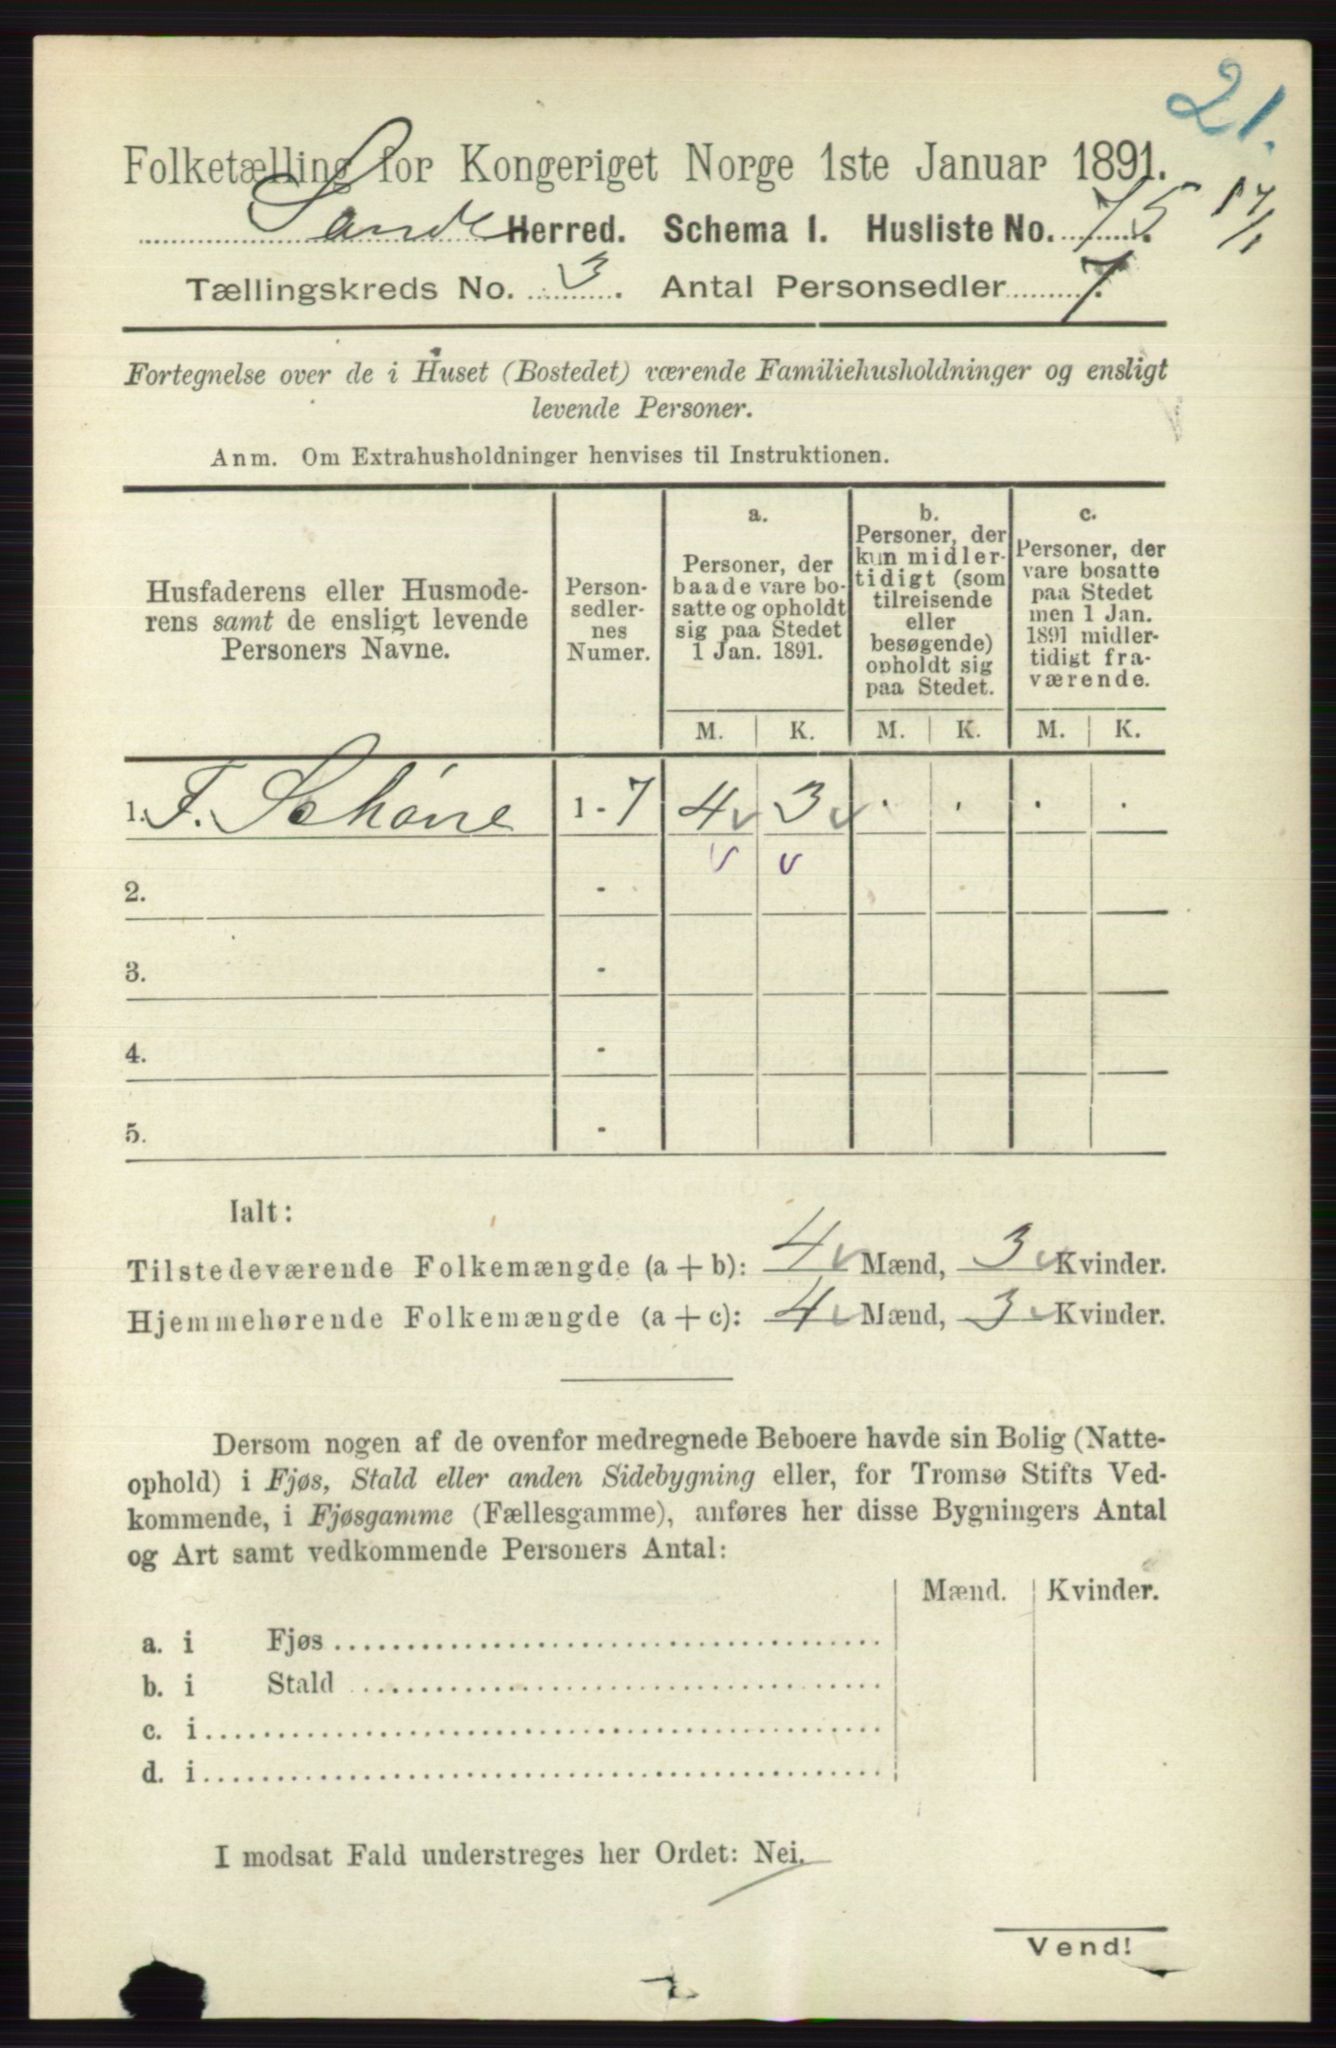 21.
Folketælling for Kongeriget Norge 1ste Januar 1891.
Sande Herred. Schema I. Husliste No. 75.
Tællingskreds No. 3. Antal Personsedler 7.
Fortegnelse over de i Huset (Bostedet) værende Familiehusholdninger og ensligt
levende Personer.
Anm. Om Extrahusholdninger henvises til Instruktionen.
Husfaderens eller Husmode-
rens samt de ensligt levende
Personers Navne.
Person-
sedler-
nes
Numer.
a.
Personer, der
baade vare bo-
satte og opholdt
sig paa Stedet
1 Jan. 1891.
b.
Personer, der
kun midler-
tidigt (som
tilreisende
eller
besøgende)
opholdt sig
paa Stedet.
c.
Personer, der
vare bosatte
paa Stedet
men 1 Jan.
1891 midler-
tidigt fra-
værende.
M. K. M. K. M. K.
1. F. Schøne 1 - 7 4 3 . . . .
2. -
3. -
4. -
5. -
Ialt:
Tilstedeværende Folkemængde (a + b): 4 Mænd, 3 Kvinder.
Hjemmehørende Folkemængde (a + c): 4 Mænd, 3 Kvinder.
Dersom nogen af de ovenfor medregnede Beboere havde sin Bolig (Natte-
ophold) i Fjøs, Stald eller anden Sidebygning eller, for Tromsø Stifts Ved-
kommende, i Fjøsgamme (Fællesgamme), anføres her disse Bygningers Antal
og Art samt vedkommende Personers Antal:
Mænd. Kvinder.
a. i Fjøs
b. i Stald
c. i
d. i
I modsat Fald understreges her Ordet: Nei.
Vend!